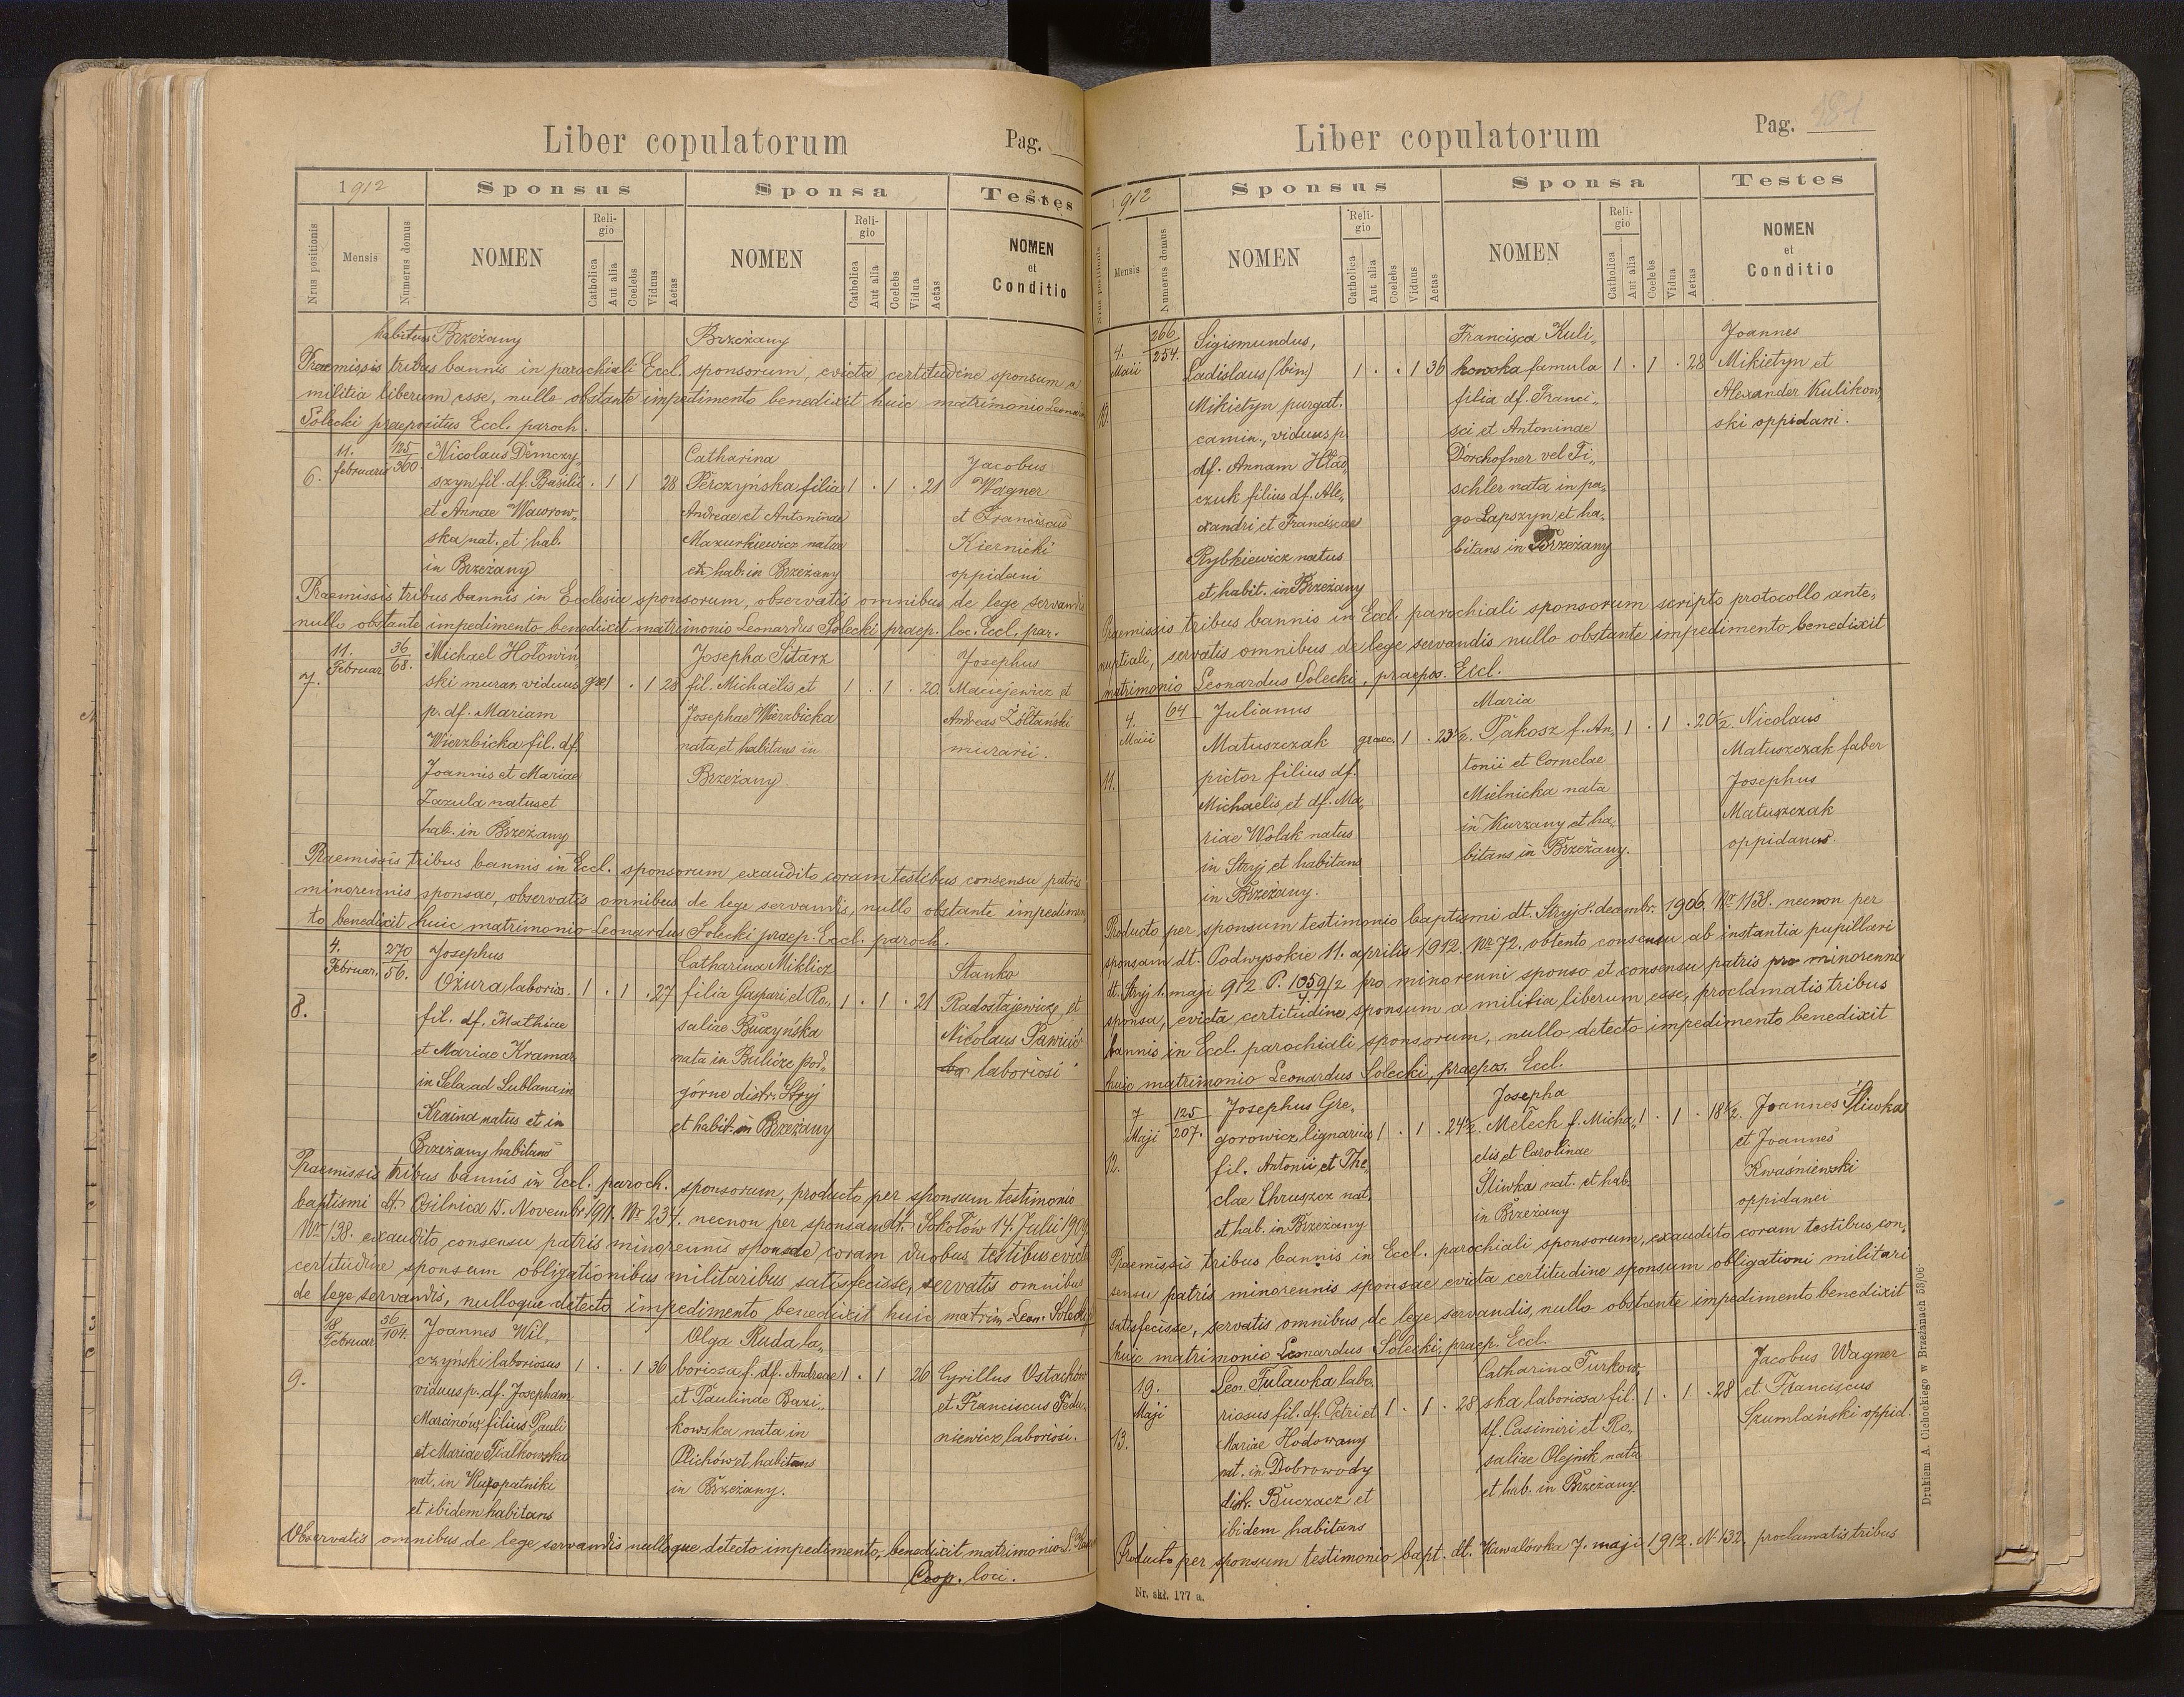 Liber copulatorum
Pag.
1912
Sponsus
Sponsa
Testes
Nrus positionis
Mensis
Numerus domus
NOMEN
Religio
Catholica
Aut alia
Coelebs
Viduus
Aetas
NOMEN
Religio
Catholica
Aut alia
Coelebs
Vidua
Aetas
NOMEN
et
Conditio
habitans Brzeżany
Brzeżany
Praemissis tribus bannis in parochiali Eccl. sponsorum, evicta certitudine sponsum a
militia liberum esse, nullo obstante impedimento benedixit huic matrimonio
Solecki praepositus Eccl. paroch.
6.
11.
februarii
125
360.
Nicolaus Demczy„
szyn fil. df. Basilii . 1 1 28
et Annae Wawrow„
ska nat. et hab.
in Brzeżany
Catharina
Perczyńska filia 1 . 1 . 21
Andreae et Antoninae
Mazurkiewicz nata
et hab. in Brzeżany
Jacobus
Wagner
et Franciscus
Kiernicki
oppidani
Praemissis tribus bannis in Ecclesia sponsorum, observatis omnibus de lege servandis
nullo obstante impedimento benedixit matrimonio Leonardus Solecki praep. loc. Eccl. par.
7.
11.
Februar
36
68.
Michael Hołowiń„
ski murar. viduus . 1 28
p. df. Mariam
Wierzbicka fil. df.
Joannis et Mariae
Zazula natus et
hab. in Brzeżany
Josepha Sitarz
fil. Michaëlis et 1 . 1 . 20
Josephae Wierzbicka
nata et habitans in
Brzeżany
Josephus
Maciejewicz et
Andreas Żółtański
murarii.
Praemissis tribus bannis in Eccl. sponsorum exaudito coram testibus consensu patris
minorennis sponsae, observatis omnibus de lege servandis, nullo obstante impedimen„
to benedixit huic matrimonio Leonardus Solecki praep. Eccl. paroch.
8.
4.
Februar.
270
56.
Josephus
Ożura laborios. 1 . 1 . 27
fil. df. Mathiae
et Mariae Kramar
in Sela ad Lublana in
Kraina natus et in
Brzeżany habitans
Catharina Miklicz
filia Gaspari et Ro„ 1 . 1 . 21
saliae Buczyńska
nata in Bilicze pod„
górne distr. Stryj
et habit. in Brzeżany
Stanko
Radostajewicz et
Nicolaus
laboriosi
Praemissis tribus bannis in Eccl. paroch. sponsorum, producto per sponsum testimonio
baptismi dt. Osilnica 15. Novembr. 1911. Nr 234. necnon per sponsam dt. Sokołów 14. Julii 190
Nr 138. exaudito consensu patris minorennis sponsae coram duobus testibus evicta
certitudine sponsum obligationibus militaribus satisfecisse, servatis omnibus
de lege servandis, nulloque detecto impedimento benedixit huic matrim. Leon. Solecki
9.
18
Februar
36
104.
Joannes Wil„
czyński laboriosus 1 . . 1 36
viduus p. df. Josepham
Marcinów, filius Pauli
et Mariae Fiałkowska
nat. in Kuropatniki
et ibidem habitans
Olga Ruda la„
boriosa f. df. Andreae 1 . 1 26
et Paulinae Bazi„
kowska nata in
Olichów et habitans
in Brzeżany.
Cyrillus Ostachów
et Franciscus Fedu„
niewicz laboriosi.
Observatis omnibus de lege servandis nulloque detecto impedimento, benedixit matrimonio
Coop. loci.
Liber copulatorum
Pag. 181
912
Sponsus
Sponsa
Testes
Nrus positionis
Mensis
Numerus domus
NOMEN
Religio
Catholica
Aut alia
Coelebs
Viduus
Aetas
NOMEN
Religio
Catholica
Aut alia
Coelebs
Vidua
Aetas
NOMEN
et
Conditio
10.
4.
Maii
266
254.
Sigismundus,
Ladislaus (bin) 1 . . 1 36
Mikietyn purgat.
camin., viduus p.
df. Annam Hład„
czuk filius df. Ale„
xandri et Franciscae
Rybkiewicz natus
et habit. in Brzeżany
Francisca Kuli„
kowska famula 1 . 1 . 28
filia df. Franci„
sci et Antoninae
Dorchofner vel Fi„
schler nata in pa„
go Łapszyn et ha„
bitans in Brzeżany
Joannes
Mikietyn et
Alexander Kulikow„
ski oppidani.
Praemissis tribus bannis in Eccl. parochiali sponsorum scripto protocollo ante„
nuptiali, servatis omnibus de lege servandis nullo obstante impedimento benedixit
matrimonio Leonardus Solecki, praepos. Eccl.
11.
4.
Maii
64
Julianus
Matuszczak graec. 1 . 23½.
pictor filius df.
Michaelis et df. Ma„
riae Wolak natus
in Stryj et habitans
in Brzeżany.
Maria
Pakosz f. An„ 1 . 1 . 20½.
tonii et Cornelae
Mielnicka nata
in Kurzany et ha„
bitans in Brzeżany.
Nicolaus
Matuszczak faber
Josephus
Matuszczak
oppidanus.
Producto per sponsum testimonio baptismi dt. Stryj 8. decembr. 1906. Nr 1138. necnon per
sponsam dt. Podwysokie 11. aprilis 1912. Nr 72. obtento consensu ab instantia pupillari
dt. Stryj 1. maji 912. P. 1059/2 pro minorenni sponso et consensu patris pro minorenni
sponsa, evicta certitudine sponsum a militia liberum esse, proclamatis tribus
bannis in Eccl. parochiali sponsorum, nullo detecto impedimento benedixit
huic matrimonio Leonardus Solecki, praepos. Eccl.
12.
7
Maji
125
207.
Josephus Gre„
gorowicz lignarius 1 . 1 . 24½.
fil. Antonii et The„
clae Chruszcz nat.
et hab. in Brzeżany
Josepha
Melech f. Micha„ 1 . 1 . 18½.
elis et Carolinae
Śliwka nat. et hab.
in Brzeżany
Joannes Śliwka
et Joannes
Kwaśniewski
oppidanei
Praemissis tribus bannis in Eccl. parochiali sponsorum, exaudito coram testibus con„
sensu patris minorennis sponsae evicta certitudine sponsum obligationi militari
satisfecisse, servatis omnibus de lege servandis, nullo obstante impedimento benedixit
huic matrimonio Leonardus Solecki, praep. Eccl.
13.
19.
Maji
Leo Tuławka labo„
riosus fil. df. Petri et 1 . 1 . 28
Mariae Hodowany
nat. in Dobrowody
distr. Buczacz et
ibidem habitans
Catharina Turkow„
ska laboriosa fil. 1 . 1 . 28
df. Casimiri et Ro„
saliae Olejnik nata
et hab. in Brzeżany.
Jacobus Wagner
et Franciscus
Szumlański oppid.
Producto per sponsum testimonio bapt. dt. Kawalówka 7. maji 1912. N 132. proclamatis tribus
Nr. skł. 177 a.
Drukiem A. Cichockiego w Brzeżanach 558/06.